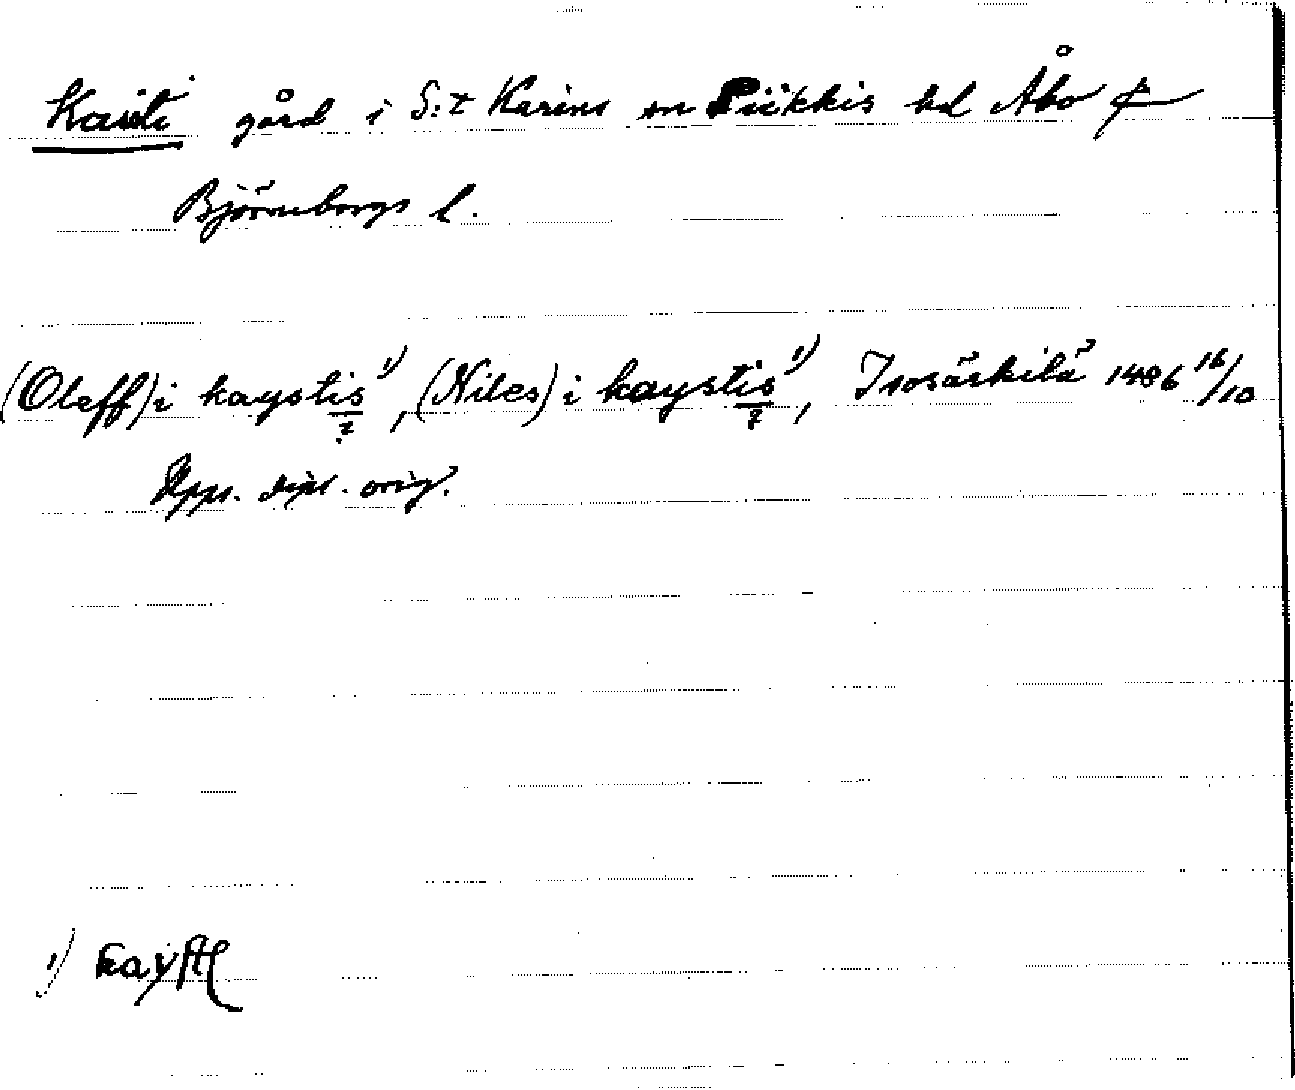 Kaisti gård i S:t Karins sn Piikkis hd Åbo o
Björneborgs l.
(Oleff) i kaystis 1), (Niles) i kaystis 1), Isosäskilä 1486 16/10
Upps. dipl. orig.
1) kayst